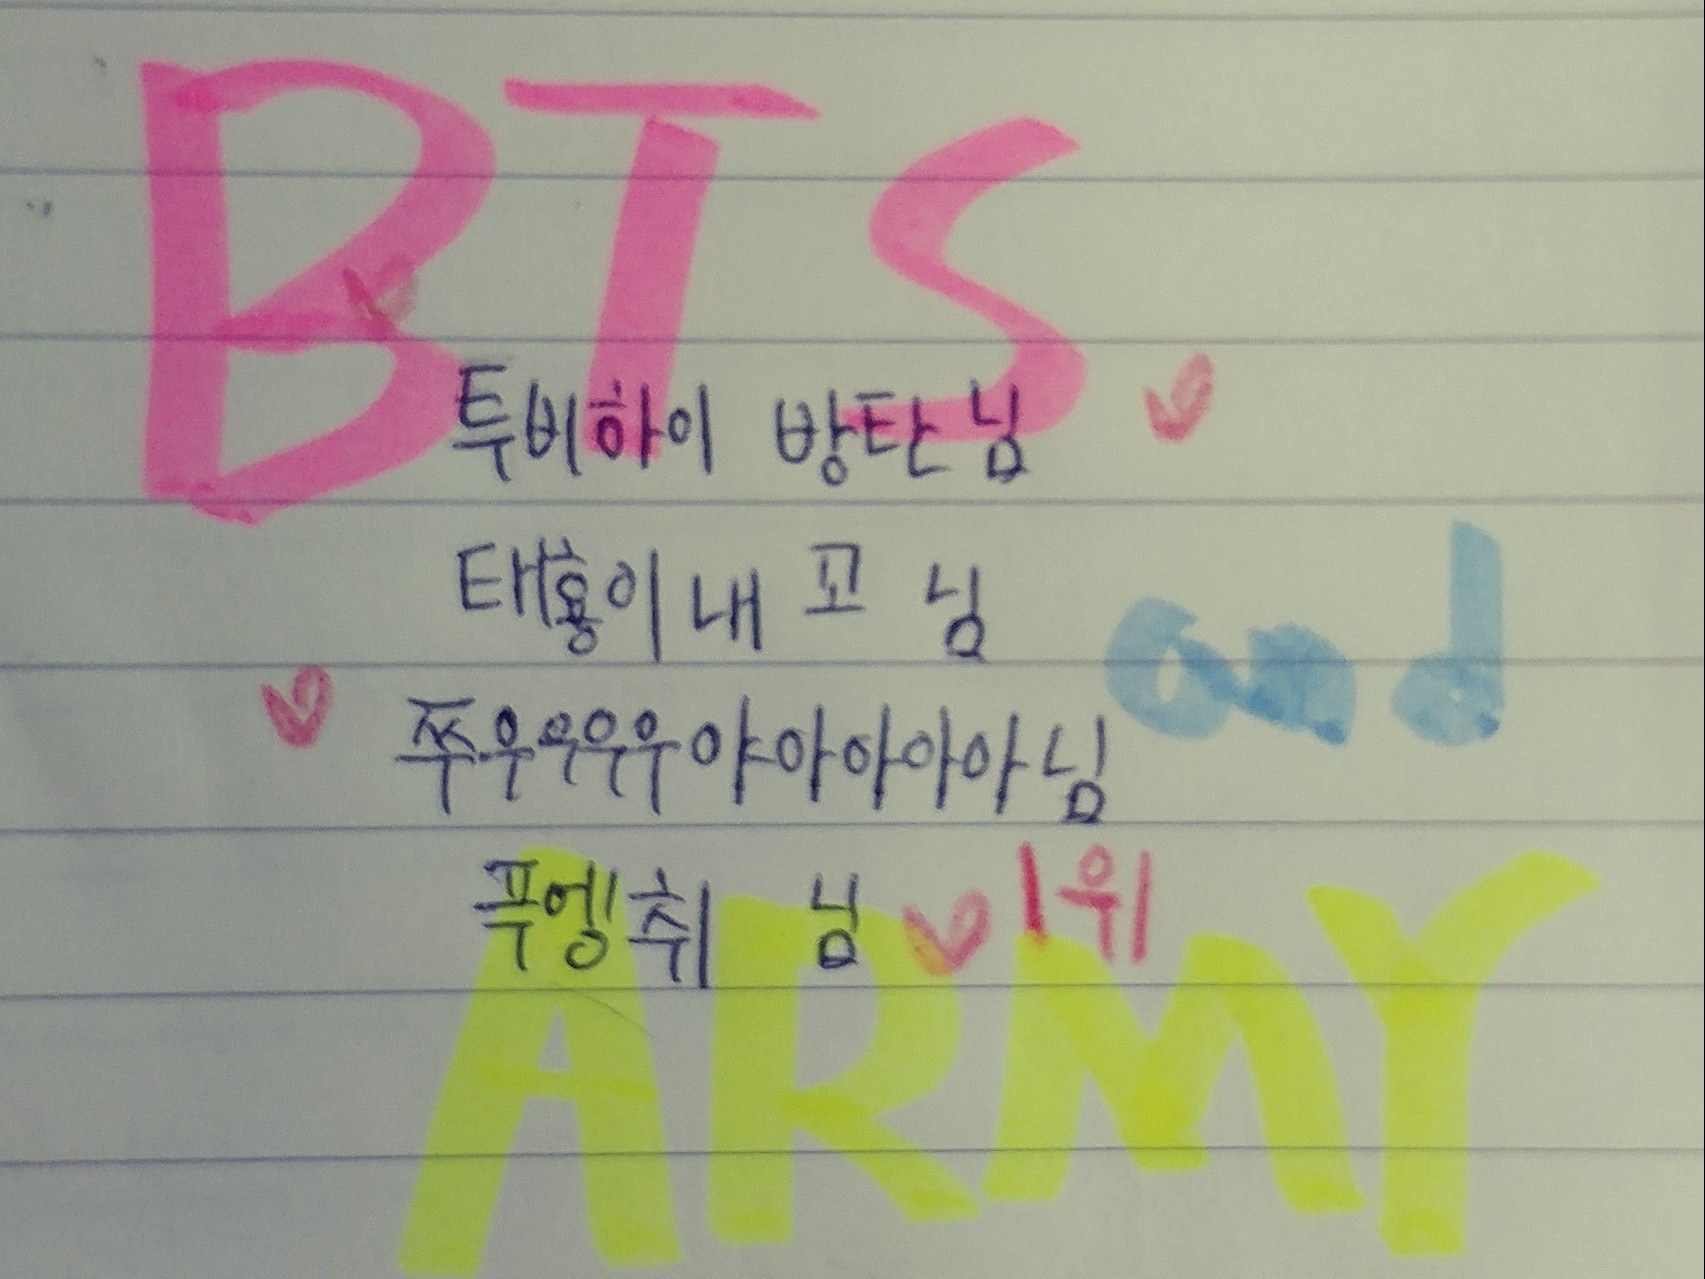 BTS
투비하이 방탄님
태횽이내 꼬 님
and
쯔우우우우야아아아아님
프엥취 님 1위
ARMY